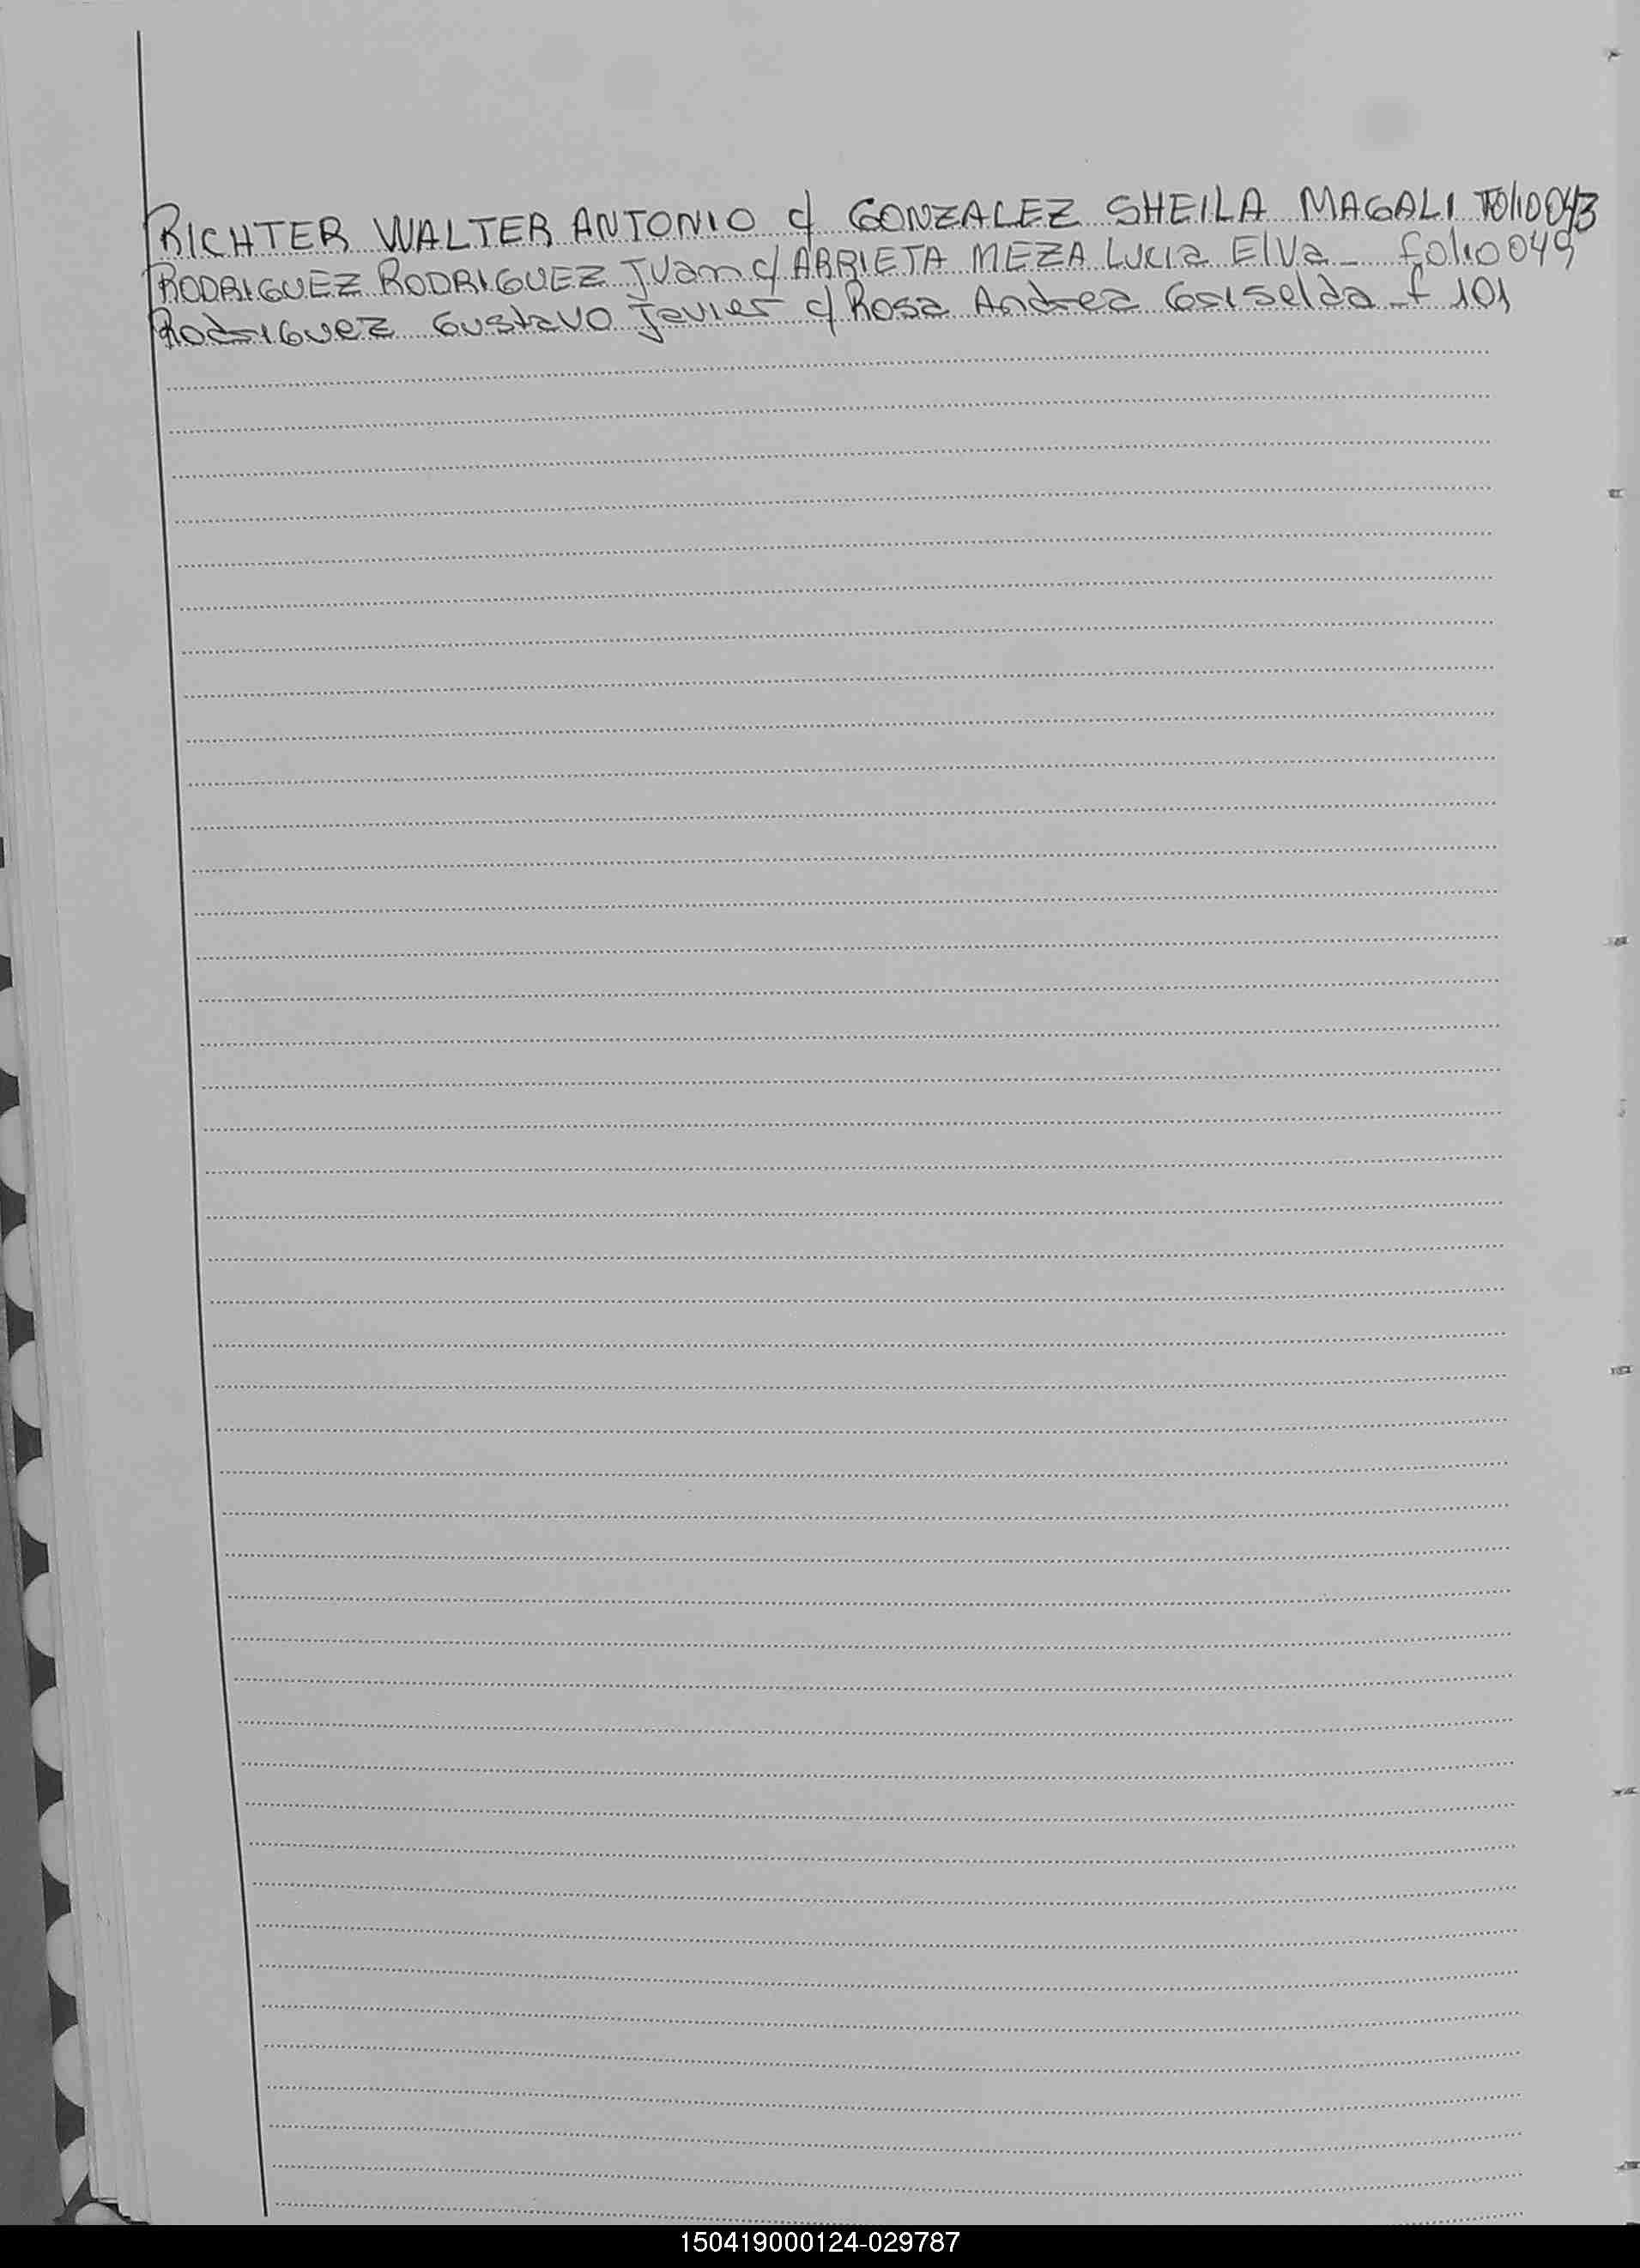 RICHTER WALTER ANTONIO c/ GONZALEZ SHEILA MAGALI FOLIO 043
RODRIGUEZ RODRIGUEZ JUan c/ ARRIETA MEZA Lucia Elva - folio 049
Rodriguez Gustavo Javier c/ Rosa Andrea Griselda - f 101
150419000124-029787